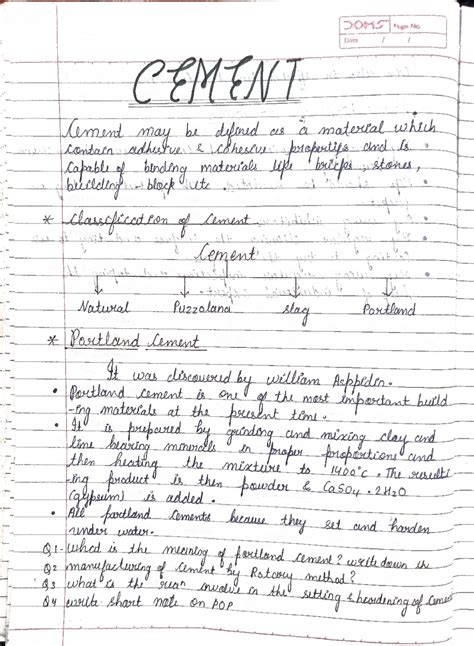 DOMS Page No.
Date / /
CEMENT
Cement may be defined as a material which
contain adhesive & cohesive properties and is
capable of binding materials like bricks, stones,
building - block etc.
* Classification of Cement
Cement
Natural Puzzolana slag Portland
* Portland Cement
It was discovered by william Asppdin.
• Portland cement is one of the most important build
-ing materials at the present time.
• It is prepared by grinding and mixing clay and
lime bearing minerals in proper proportions and
then heating the mixture to 1400°c. The result
ing product is then powder & CaSO4 . 2H2O
(gypsum) is added.
• All portland cements because they set and harden
under water.
Q1 what is the meaning of portland cement? write down the
Q2 manufacturing of cement by Rotatory method?
Q3 what is the involve in the setting & heardening of Cement
Q4 write short note on POP